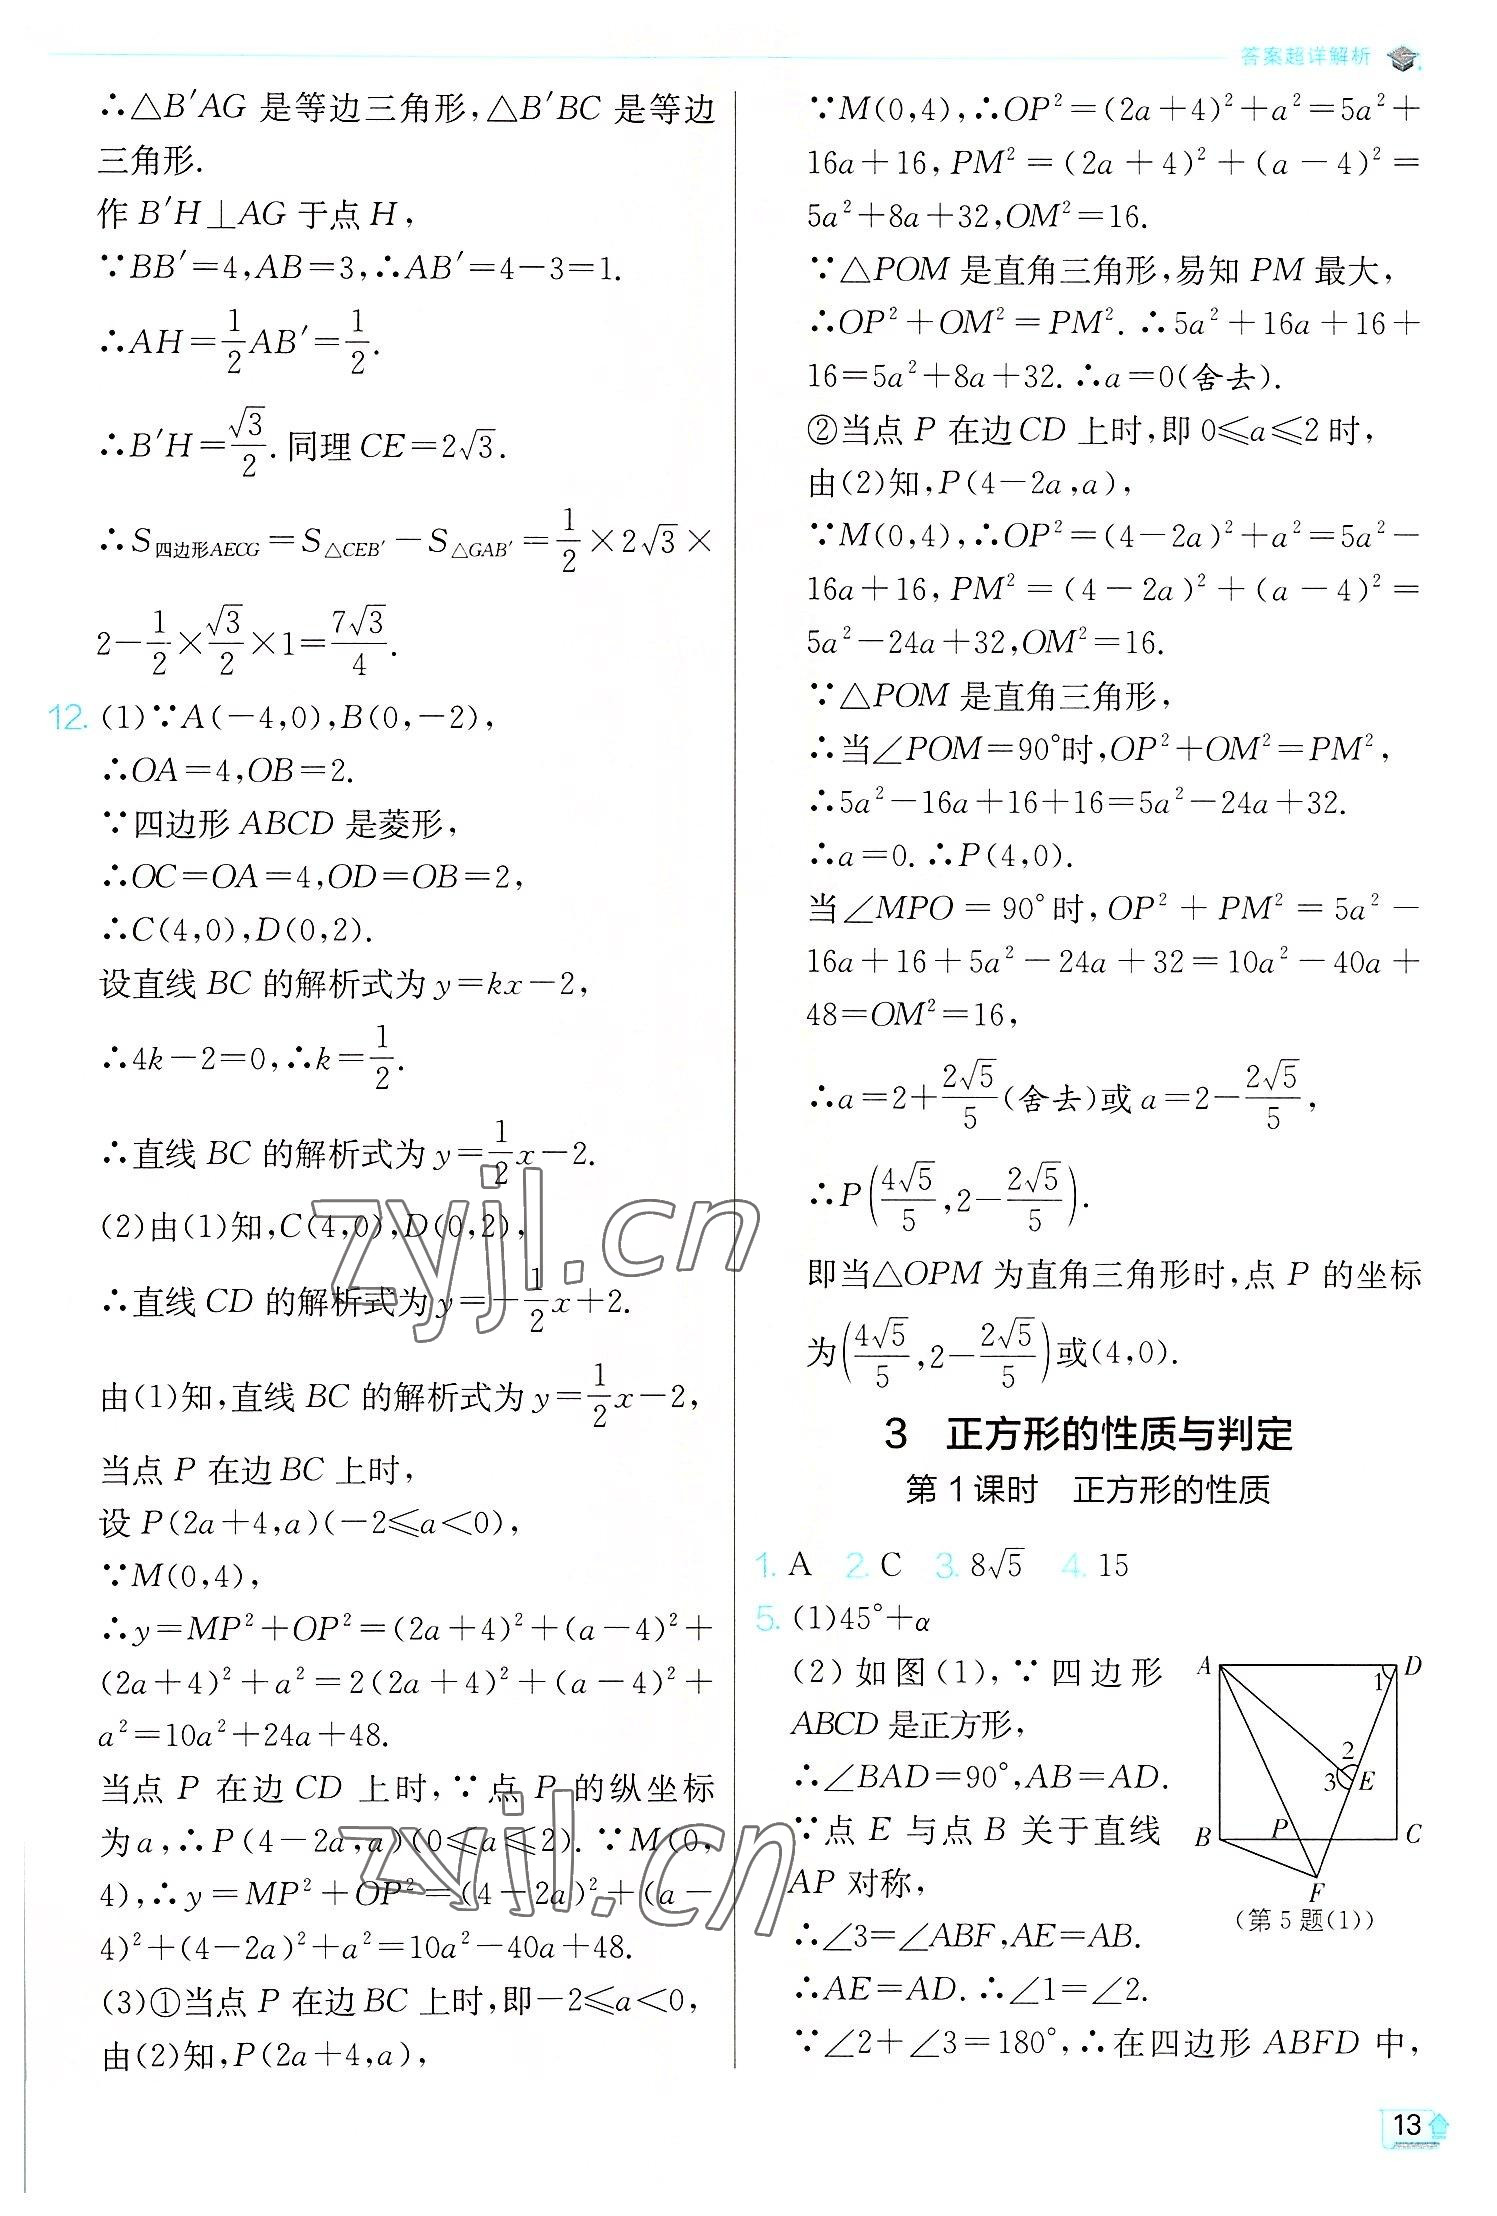 答案超详解析
∴△B′AG 是等边三角形,△B′BC 是等边
三角形.
作 B′H⊥AG 于点 H,
∵BB′=4,AB=3,∴AB′=4−3=1.
∴AH=1/2AB′=1/2.
∴B′H=√3/2.同理 CE=2√3.
∴S四边形AECG=S△CEB′−S△GAB′=1/2×2√3×
2−1/2×√3/2×1=7√3/4.
12. (1)∵A(−4,0),B(0,−2),
∴OA=4,OB=2.
∵四边形 ABCD 是菱形,
∴OC=OA=4,OD=OB=2,
∴C(4,0),D(0,2).
设直线 BC 的解析式为 y=kx−2,
∴4k−2=0,∴k=1/2.
∴直线 BC 的解析式为 y=1/2x−2.
(2)由(1)知,C(4,0),D(0,2),
∴直线 CD 的解析式为 y=−1/2x+2.
由(1)知,直线 BC 的解析式为 y=1/2x−2,
当点 P 在边 BC 上时,
设 P(2a+4,a)(−2≤a<0),
∵M(0,4),
∴y=MP²+OP²=(2a+4)²+(a−4)²+
(2a+4)²+a²=2(2a+4)²+(a−4)²+
a²=10a²+24a+48.
当点 P 在边 CD 上时,∵点 P 的纵坐标
为 a,∴P(4−2a,a)(0≤a≤2).∵M(0,
4),∴y=MP²+OP²=(4−2a)²+(a−
4)²+(4−2a)²+a²=10a²−40a+48.
(3)①当点 P 在边 BC 上时,即−2≤a<0,
由(2)知,P(2a+4,a),
∵M(0,4),∴OP²=(2a+4)²+a²=5a²+
16a+16,PM²=(2a+4)²+(a−4)²=
5a²+8a+32,OM²=16.
∵△POM 是直角三角形,易知 PM 最大,
∴OP²+OM²=PM².∴5a²+16a+16+
16=5a²+8a+32.∴a=0(舍去).
②当点 P 在边 CD 上时,即 0≤a≤2 时,
由(2)知,P(4−2a,a),
∵M(0,4),∴OP²=(4−2a)²+a²=5a²−
16a+16,PM²=(4−2a)²+(a−4)²=
5a²−24a+32,OM²=16.
∵△POM 是直角三角形,
∴当∠POM=90°时,OP²+OM²=PM²,
∴5a²−16a+16+16=5a²−24a+32.
∴a=0.∴P(4,0).
当∠MPO=90°时,OP²+PM²=5a²−
16a+16+5a²−24a+32=10a²−40a+
48=OM²=16,
∴a=2+2√5/5(舍去)或 a=2−2√5/5,
∴P(4√5/5,2−2√5/5).
即当△OPM 为直角三角形时,点 P 的坐标
为(4√5/5,2−2√5/5)或(4,0).
3 正方形的性质与判定
第 1 课时 正方形的性质
1. A 2. C 3. 8√5 4. 15
5. (1)45°+α
(2)如图(1),∵四边形
ABCD 是正方形,
∴∠BAD=90°,AB=AD.
∵点 E 与点 B 关于直线
AP 对称,
∴∠3=∠ABF,AE=AB.
∴AE=AD.∴∠1=∠2.
∵∠2+∠3=180°,∴在四边形 ABFD 中,
A
D
1
2
3
E
B
P
C
F
(第 5 题(1))
13
zyjl.cn
zyjl.cn